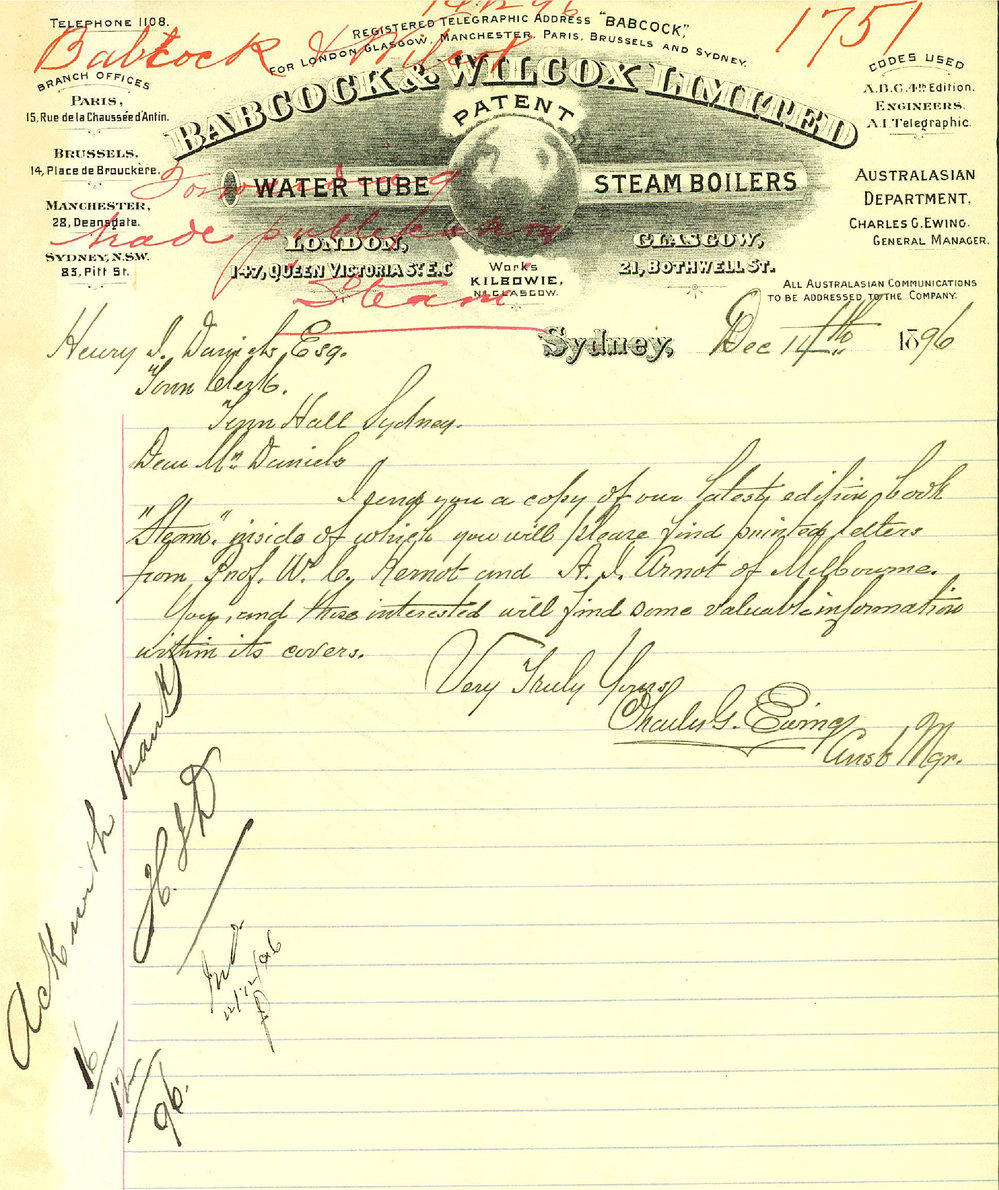 TELEPHONE 1108.
14.12.96
1751
Babcock & Wilcox
REGISTERED TELEGRAPHIC ADDRESS "BABCOCK",
FOR LONDON, GLASGOW, MANCHESTER, PARIS, BRUSSELS AND SYDNEY.
BRANCH OFFICES
PARIS,
15, Rue de la Chaussée d'Antin.
BRUSSELS,
14, Place de Brouckére.
MANCHESTER,
28, Deansgate.
SYDNEY, N.S.W.
83, Pitt St.
BABCOCK & WILCOX LIMITED
PATENT
WATER TUBE STEAM BOILERS
LONDON,
147, QUEEN VICTORIA ST. E.C
Works
KILBOWIE,
Nr GLASGOW.
GLASGOW,
21, BOTHWELL ST.
CODES USED
A.B.C. 4th Edition.
ENGINEERS.
A.I. Telegraphic.
AUSTRALASIAN
DEPARTMENT,
CHARLES G. EWING.
GENERAL MANAGER.
ALL AUSTRALASIAN COMMUNICATIONS
TO BE ADDRESSED TO THE COMPANY.
Forwarding
trade publication
"Steam"
Sydney, Dec 14th 1896
Henry J. Daniels, Esq.
Town Clerk.
Town Hall Sydney.
Dear Mr Daniels
I send you a copy of our latest edition book
"Steam" inside of which you will please find printed letters
from Prof. W. C. Kernot and A. J. Arnot of Melbourne.
You, and those interested will find some valuable information
within its covers.
Very Truly Yours
Charles G. Ewing
Aust Mgr.
Ack with thanks
H.J.D
16/12/96.